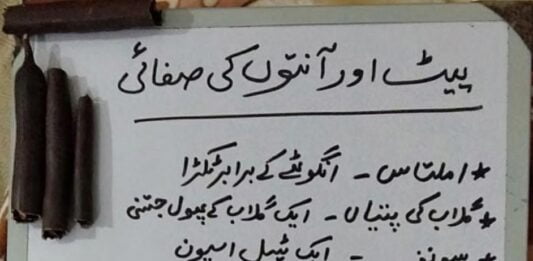 پیٹ اور آنتوں کی صفائی
* املتاس - انگوٹھے کے برابر ٹکڑا
* گلاب کی پتیاں - ایک گلاب کے پھول جتنی
سونف - ایک ٹیبل اسپون